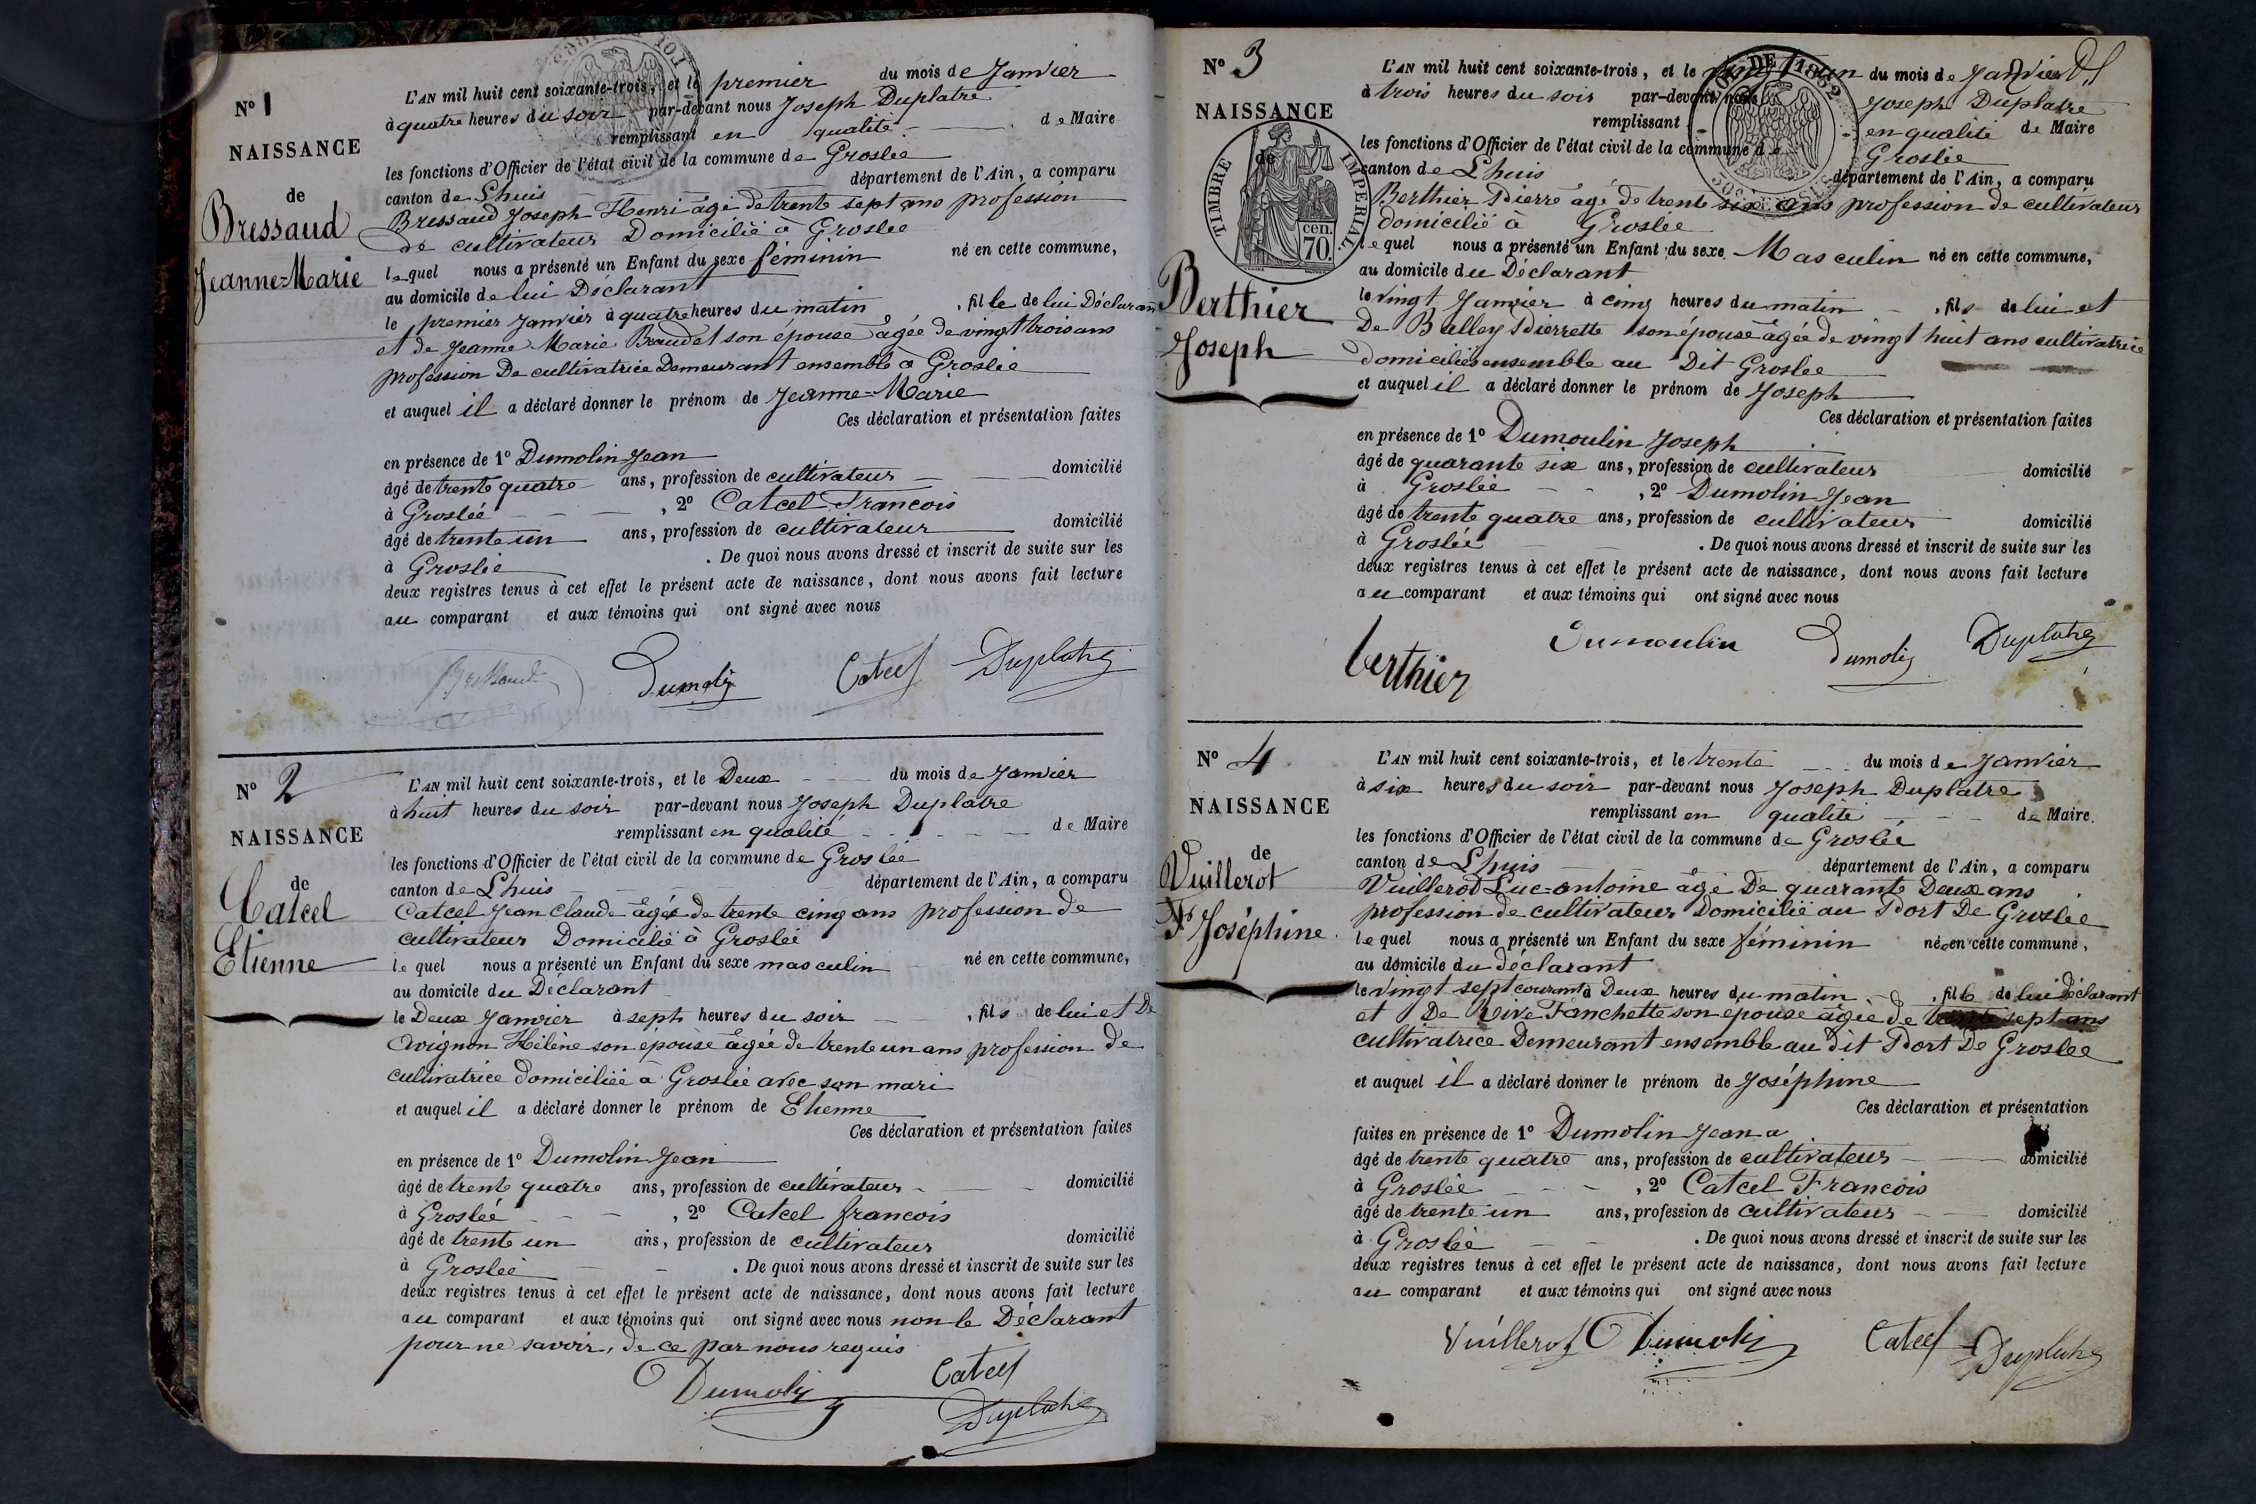 N° 1
NAISSANCE
de
Bressaud
Jeanne-Marie
L'AN mil huit cent soixante-trois, et le premier du mois de Janvier
à quatre heures du soir par-devant nous Joseph Duplatre
remplissant en qualité de Maire
les fonctions d'Officier de l'état civil de la commune de Groslée
canton de Lhuis département de l'Ain, a comparu
Bressaud Joseph Henri âgé de trente sept ans profession
de cultivateur Domicilié à Groslée
lequel nous a présenté un Enfant du sexe féminin né en cette commune,
au domicile de lui Déclarant
le premier Janvier à quatre heures du matin, fille de lui Déclarant
et de Jeanne Marie son épouse âgée de vingt trois ans
profession De cultivatrice Demeurant ensemble à Groslée
et auquel il a déclaré donner le prénom de Jeanne-Marie
Ces déclaration et présentation faites
en présence de 1° Dumolin Jean
âgé de trente quatre ans, profession de cultivateur domicilié
à Groslée, 2° Catcel Francois
âgé de trente un ans, profession de cultivateur domicilié
à Groslée. De quoi nous avons dressé et inscrit de suite sur les
deux registres tenus à cet effet le présent acte de naissance, dont nous avons fait lecture
au comparant et aux témoins qui ont signé avec nous
Bressaud Dumolin Catcel Duplatre
N° 2
NAISSANCE
de
Catcel
Etienne
L'AN mil huit cent soixante-trois, et le Deux du mois de Janvier
à huit heures du soir par-devant nous Joseph Duplatre
remplissant en qualité de Maire
les fonctions d'Officier de l'état civil de la commune de Groslée
canton de Lhuis département de l'Ain, a comparu
Catcel Jean Claude âgé de trente cinq ans profession de
cultivateur Domicilié à Groslée
lequel nous a présenté un Enfant du sexe masculin né en cette commune,
au domicile du Déclarant
le Deux Janvier à sept heures du soir, fils de lui et De
Avignon Hélène son épouse âgée de trente un ans profession de
cultivatrice domiciliée à Groslée avec son mari
et auquel il a déclaré donner le prénom de Etienne
Ces déclaration et présentation faites
en présence de 1° Dumolin Jean
âgé de trente quatre ans, profession de cultivateur domicilié
à Groslée, 2° Catcel francois
âgé de trente un ans, profession de cultivateur domicilié
à Groslée. De quoi nous avons dressé et inscrit de suite sur les
deux registres tenus à cet effet le présent acte de naissance, dont nous avons fait lecture
au comparant et aux témoins qui ont signé avec nous non le Déclarant
pour ne savoir, de ce par nous requis
Dumolin Catcel
Duplatre
N° 3
NAISSANCE
de
TIMBRE IMPERIAL
70 cen.
Berthier
Joseph
L'AN mil huit cent soixante-trois, et le vingt un du mois de Janvier
à trois heures du soir par-devant nous Joseph Duplatre
remplissant en qualité de Maire
les fonctions d'Officier de l'état civil de la commune de Groslée
canton de Lhuis département de l'Ain, a comparu
Berthier Pierre âgé de trente six ans profession de cultivateur
domicilié à Groslée
lequel nous a présenté un Enfant du sexe Masculin né en cette commune,
au domicile du Déclarant
le vingt Janvier à cinq heures du matin, fils de lui et
De Balley Pierrette son épouse âgée de vingt huit ans cultivatrice
domiciliés ensemble au Dit Groslée
et auquel il a déclaré donner le prénom de Joseph
Ces déclaration et présentation faites
en présence de 1° Dumoulin Joseph
âgé de quarante six ans, profession de cultivateur domicilié
à Groslée, 2° Dumolin Jean
âgé de trente quatre ans, profession de cultivateur domicilié
à Groslée. De quoi nous avons dressé et inscrit de suite sur les
deux registres tenus à cet effet le présent acte de naissance, dont nous avons fait lecture
au comparant et aux témoins qui ont signé avec nous
berthier Dumoulin Dumolin Duplatre
N° 4
NAISSANCE
de
Vuillerot
Joséphine
L'AN mil huit cent soixante-trois, et le trente du mois de Janvier
à six heures du soir par-devant nous Joseph Duplatre
remplissant en qualité de Maire.
les fonctions d'Officier de l'état civil de la commune de Groslée
canton de Lhuis département de l'Ain, a comparu
Vuillerot Luc-antoine âgé De quarante Deux ans
profession de cultivateur Domicilié au Port De Groslée
lequel nous a présenté un Enfant du sexe féminin né en cette commune,
au domicile du déclarant
le vingt sept courant à Deux heures du matin, fille de lui déclarant
et De Rive Fanchette son épouse âgée de trente sept ans
cultivatrice Demeurant ensemble au dit Port De Groslée
et auquel il a déclaré donner le prénom de Joséphine
Ces déclaration et présentation
faites en présence de 1° Dumolin Jean
âgé de trente quatre ans, profession de cultivateur domicilié
à Groslée, 2° Catcel Francois
âgé de trente un ans, profession de cultivateur domicilié
à Groslée. De quoi nous avons dressé et inscrit de suite sur les
deux registres tenus à cet effet le présent acte de naissance, dont nous avons fait lecture
au comparant et aux témoins qui ont signé avec nous
Vuillerot Dumolin Catcel Duplatre